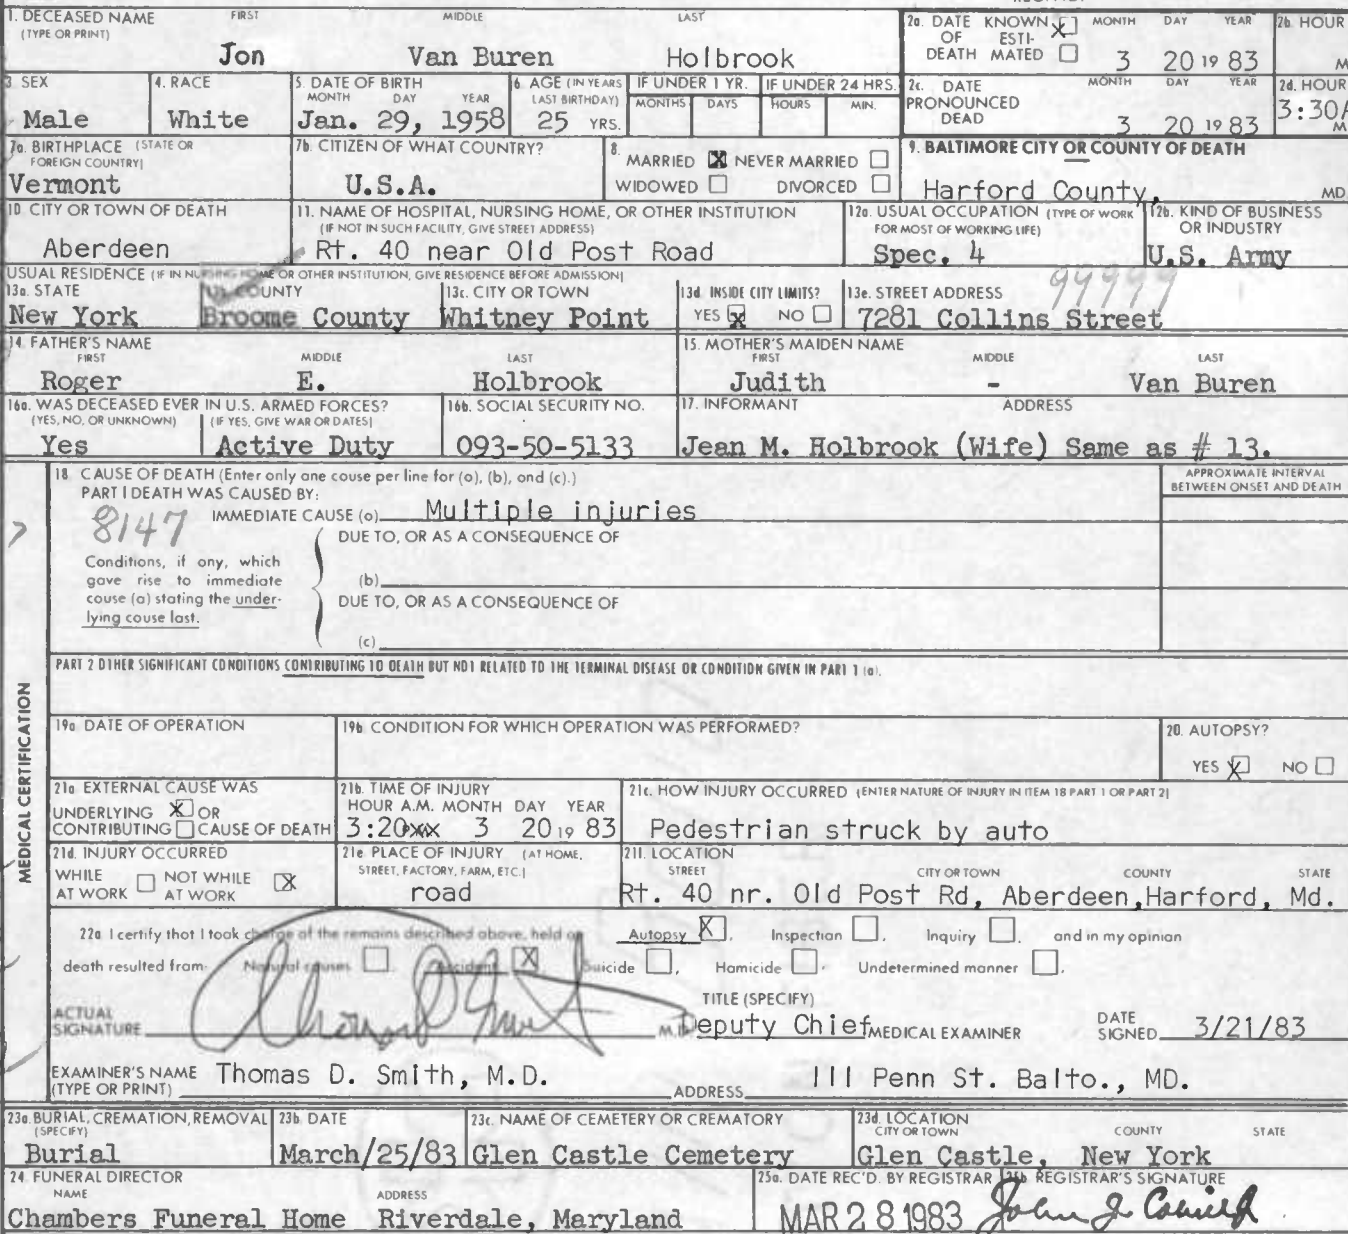 1. DECEASED NAME FIRST MIDDLE LAST
(TYPE OR PRINT)
Jon Van Buren Holbrook
2a. DATE KNOWN X MONTH DAY YEAR
OF ESTI-
DEATH MATED 3 20 19 83
2b. HOUR
M
3. SEX
Male
4. RACE
White
5. DATE OF BIRTH
MONTH DAY YEAR
Jan. 29, 1958
6. AGE (IN YEARS
LAST BIRTHDAY)
25 YRS.
IF UNDER 1 YR.
MONTHS DAYS
IF UNDER 24 HRS.
HOURS MIN.
2c. DATE MONTH DAY YEAR
PRONOUNCED
DEAD 3 20 19 83
2d. HOUR
3:30A
M
7a. BIRTHPLACE (STATE OR
FOREIGN COUNTRY)
Vermont
7b. CITIZEN OF WHAT COUNTRY?
U.S.A.
8.
MARRIED X NEVER MARRIED
WIDOWED DIVORCED
9. BALTIMORE CITY OR COUNTY OF DEATH
Harford County, MD
10. CITY OR TOWN OF DEATH
Aberdeen
11. NAME OF HOSPITAL, NURSING HOME, OR OTHER INSTITUTION
(IF NOT IN SUCH FACILITY, GIVE STREET ADDRESS)
Rt. 40 near Old Post Road
12a. USUAL OCCUPATION (TYPE OF WORK
FOR MOST OF WORKING LIFE)
Spec. 4
12b. KIND OF BUSINESS
OR INDUSTRY
U.S. Army
USUAL RESIDENCE (IF IN NURSING HOME OR OTHER INSTITUTION, GIVE RESIDENCE BEFORE ADMISSION)
13a. STATE
New York
COUNTY
Broome County
13c. CITY OR TOWN
Whitney Point
13d. INSIDE CITY LIMITS?
YES X NO
13e. STREET ADDRESS 99999
7281 Collins Street
14. FATHER'S NAME
FIRST MIDDLE LAST
Roger E. Holbrook
15. MOTHER'S MAIDEN NAME
FIRST MIDDLE LAST
Judith - Van Buren
16a. WAS DECEASED EVER IN U.S. ARMED FORCES?
(YES, NO, OR UNKNOWN) (IF YES, GIVE WAR OR DATES)
Yes Active Duty
16b. SOCIAL SECURITY NO.
093-50-5133
17. INFORMANT ADDRESS
Jean M. Holbrook (Wife) Same as # 13.
MEDICAL CERTIFICATION
18. CAUSE OF DEATH (Enter only one couse per line for (o), (b), ond (c).)
PART I DEATH WAS CAUSED BY:
8147 IMMEDIATE CAUSE (o) Multiple injuries
APPROXIMATE INTERVAL
BETWEEN ONSET AND DEATH
DUE TO, OR AS A CONSEQUENCE OF
Conditions, if any, which
gove rise to immediate
couse (a) stating the under-
lying couse last.
(b)
DUE TO, OR AS A CONSEQUENCE OF
(c)
PART 2 OTHER SIGNIFICANT CONDITIONS CONTRIBUTING TO DEATH BUT NOT RELATED TO THE TERMINAL DISEASE OR CONDITION GIVEN IN PART 1 (a).
19a. DATE OF OPERATION
19b. CONDITION FOR WHICH OPERATION WAS PERFORMED?
20. AUTOPSY?
YES X NO
21a. EXTERNAL CAUSE WAS
UNDERLYING X OR
CONTRIBUTING CAUSE OF DEATH
21b. TIME OF INJURY
HOUR A.M. MONTH DAY YEAR
3:20 3 20 19 83
21c. HOW INJURY OCCURRED (ENTER NATURE OF INJURY IN ITEM 18 PART 1 OR PART 2)
Pedestrian struck by auto
21d. INJURY OCCURRED
WHILE NOT WHILE X
AT WORK AT WORK
21e. PLACE OF INJURY (AT HOME,
STREET, FACTORY, FARM, ETC.)
road
21f. LOCATION
STREET CITY OR TOWN COUNTY STATE
Rt. 40 nr. Old Post Rd, Aberdeen, Harford, Md.
22a. I certify that I took charge of the remains described above, held an Autopsy X, Inspection, Inquiry, and in my opinion
death resulted from Natural causes Accident X Suicide, Homicide, Undetermined manner.
TITLE (SPECIFY)
ACTUAL
SIGNATURE M.D. Deputy Chief MEDICAL EXAMINER
DATE
SIGNED 3/21/83
EXAMINER'S NAME Thomas D. Smith, M.D.
(TYPE OR PRINT)
ADDRESS 111 Penn St. Balto., MD.
23a. BURIAL, CREMATION, REMOVAL
(SPECIFY)
Burial
23b. DATE
March/25/83
23c. NAME OF CEMETERY OR CREMATORY
Glen Castle Cemetery
23d. LOCATION
CITY OR TOWN COUNTY STATE
Glen Castle, New York
24. FUNERAL DIRECTOR
NAME ADDRESS
Chambers Funeral Home Riverdale, Maryland
25a. DATE REC'D. BY REGISTRAR
MAR 28 1983
25b. REGISTRAR'S SIGNATURE